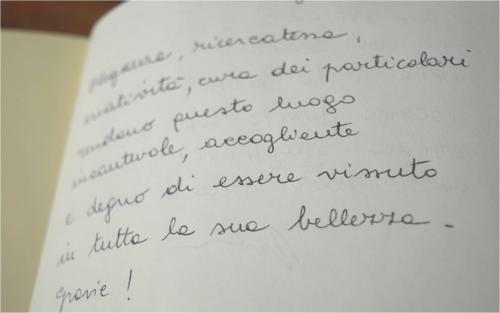 eleganza, ricercatezza,
creatività, cura dei particolari
rendono questo luogo
incantevole, accogliente
e degno di essere vissuto
in tutta la sua bellezza.
grazie!